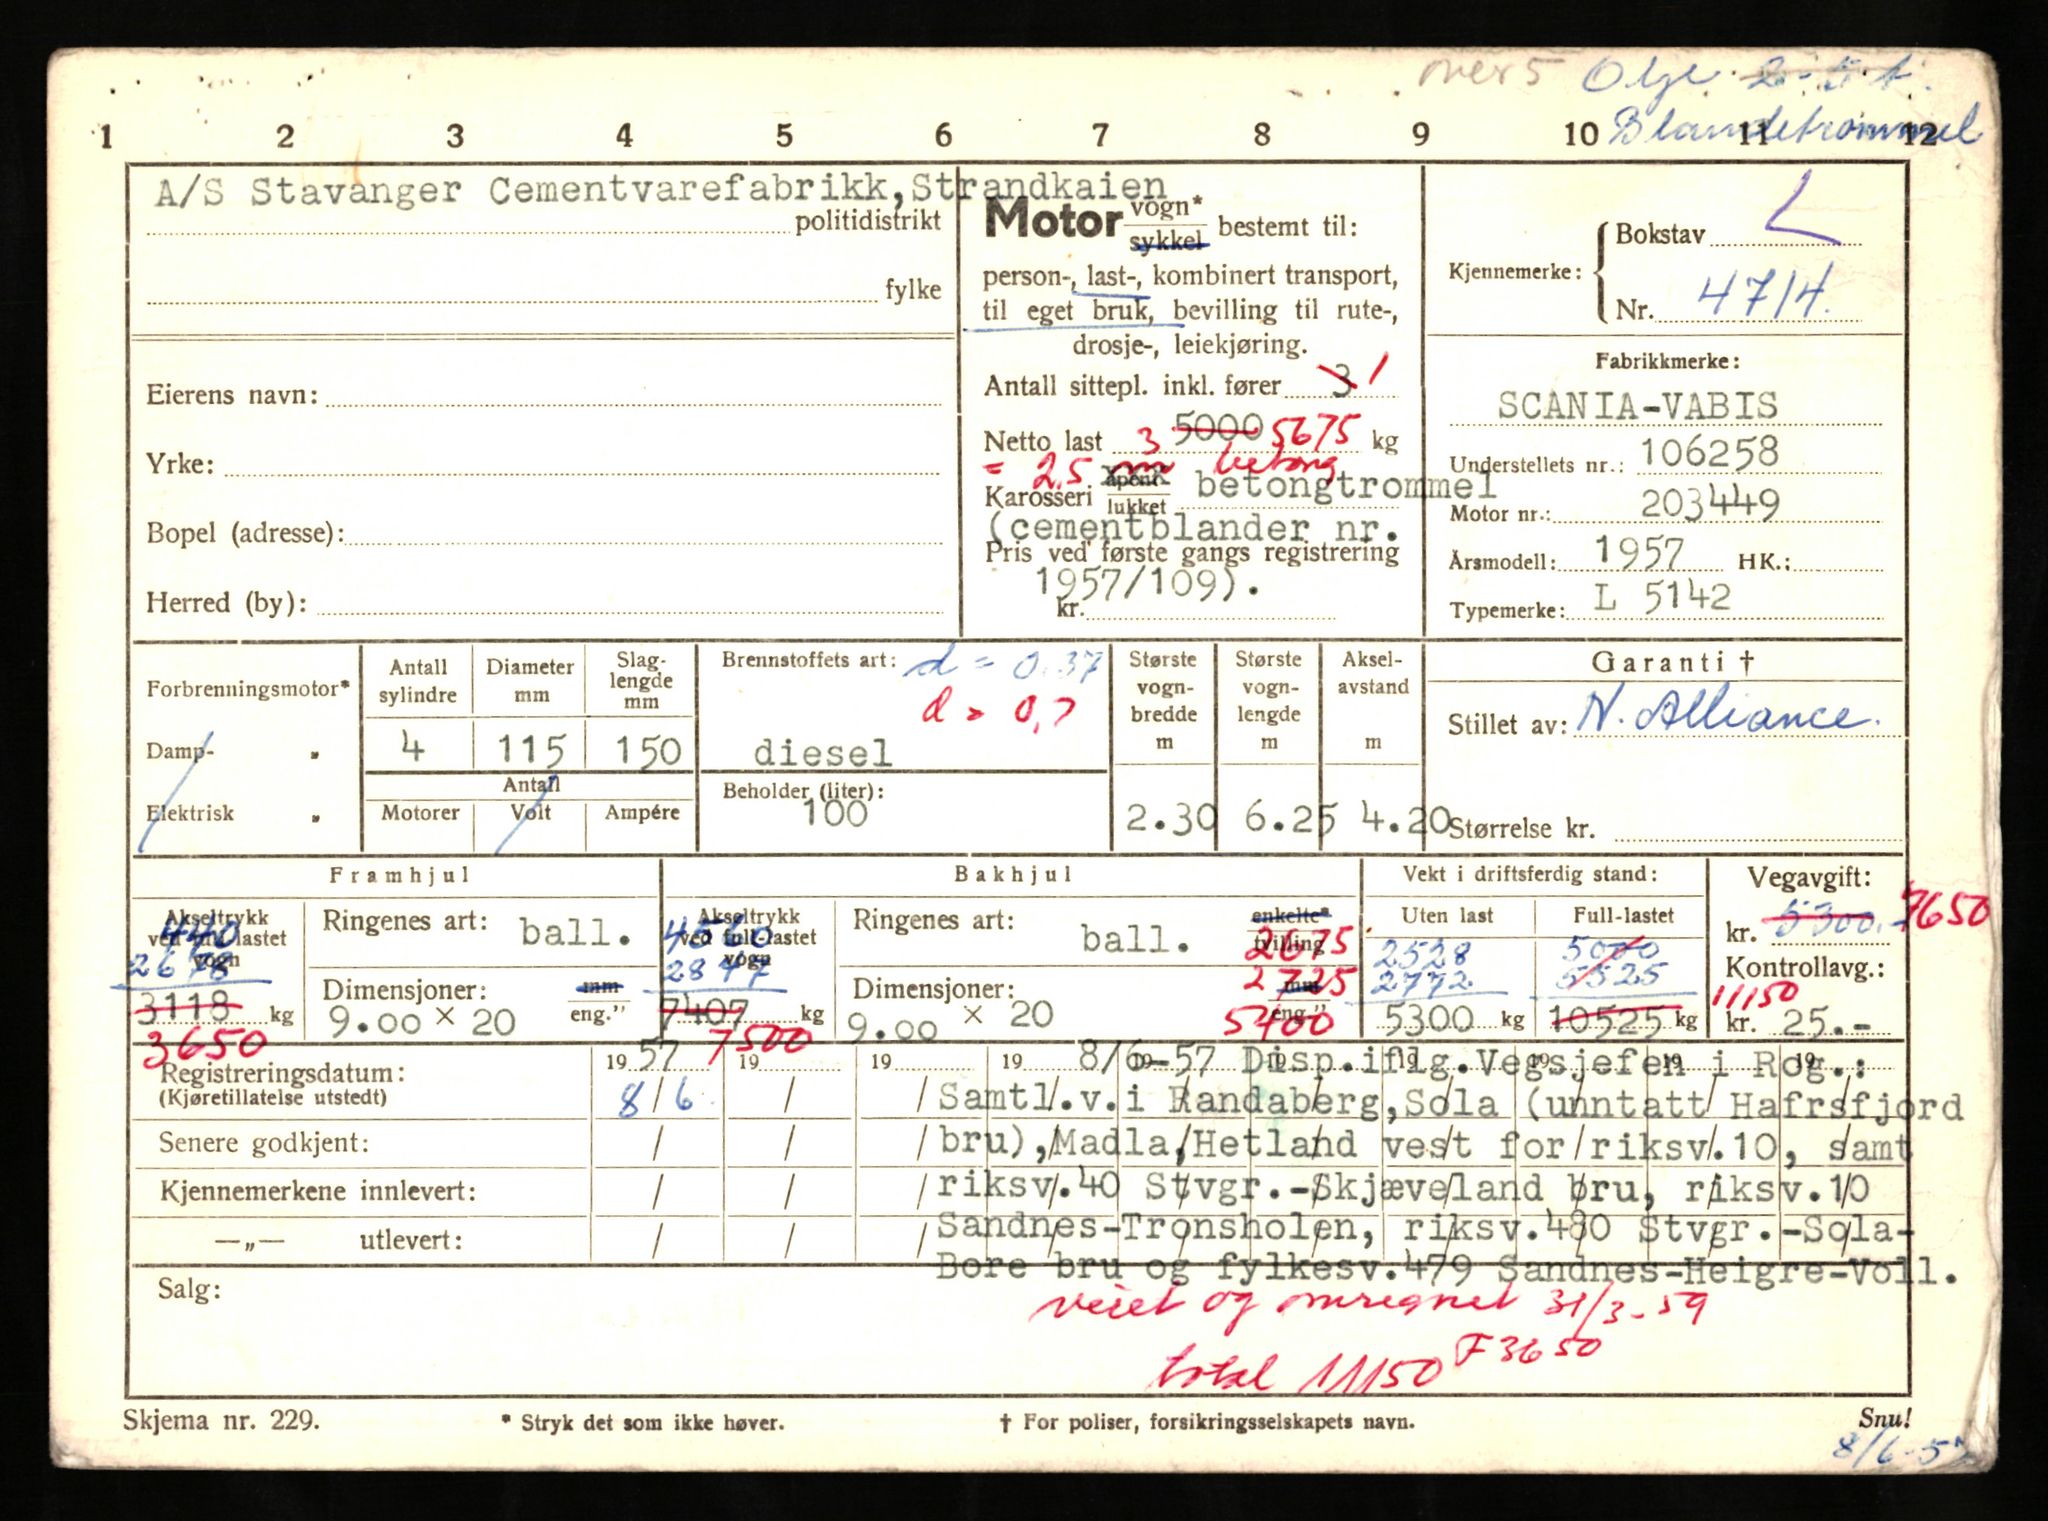 over 5 Olje 2-5 t.
Blandetrommel
1 2 3 4 5 6 7 8 9 10 11 12
A/S Stavanger Cementvarefabrikk, Strandkaien
politidistrikt
fylke
Eierens navn:
Yrke:
Bopel (adresse):
Herred (by):
Motor vogn* sykkel bestemt til:
person-, last-, kombinert transport,
til eget bruk, bevilling til rute-,
drosje-, leiekjøring.
Antall sittepl. inkl. fører 3 1
Netto last 5000 5675 kg
= 2,5 m3 betong
Karosseri åpent lukket betongtrommel
(cementblander nr.
Pris ved første gangs registrering
1957/109).
kr.
Kjennemerke: Bokstav L
Nr. 4714.
Fabrikkmerke:
SCANIA-VABIS
Understellets nr.: 106258
Motor nr.: 203449
Årsmodell: 1957 HK.:
Typemerke: L 5142
Forbrenningsmotor*
Damp- "
Elektrisk "
Antall sylindre 4
Diameter mm 115
Slaglengde mm 150
Antall
Motorer Volt Ampére
Brennstoffets art: d = 0.37
d = 0,7
diesel
Beholder (liter):
100
Største vognbredde m 2.30
Største vognlengde m 6.25
Akselavstand m 4.20
Garanti †
Stillet av: N. Alliance.
Størrelse kr.
Framhjul
Akseltrykk ved full-lastet vogn
440
2678
3118 kg
3650
Ringenes art: ball.
Dimensjoner: mm eng."
9.00 × 20
Bakhjul
Akseltrykk ved full-lastet vogn
4560
2847
7407 kg
7500
Ringenes art: ball.
enkelte* tvilling
Dimensjoner: mm eng."
9.00 × 20
2675
2725
5400
Vekt i driftsferdig stand:
Uten last Full-lastet
2528 5000
2772 5525
5300 kg 10525 kg
11150
Vegavgift:
kr. 5300.- 7650
Kontrollavg.:
kr. 25.-
Registreringsdatum: 19 57 19 19 19 19 19 19 19 19 19
(Kjøretillatelse utstedt) 8/6
Senere godkjent:
Kjennemerkene innlevert:
—„— utlevert:
8/6-57 Disp.iflg.Vegsjefen i Rog.:
Samtl.v.i Randaberg,Sola (unntatt Hafrsfjord
bru),Madla,Hetland vest for riksv.10, samt
riksv.40 Stvgr.-Skjæveland bru, riksv.10
Sandnes-Tronsholen, riksv.480 Stvgr.-Sola-
Bore bru og fylkesv.479 Sandnes-Heigre-Voll.
Salg:
veiet og omregnet 31/3-59
total 11150 F 3650
Skjema nr. 229. * Stryk det som ikke høver. † For poliser, forsikringsselskapets navn. Snu!
8/6-57